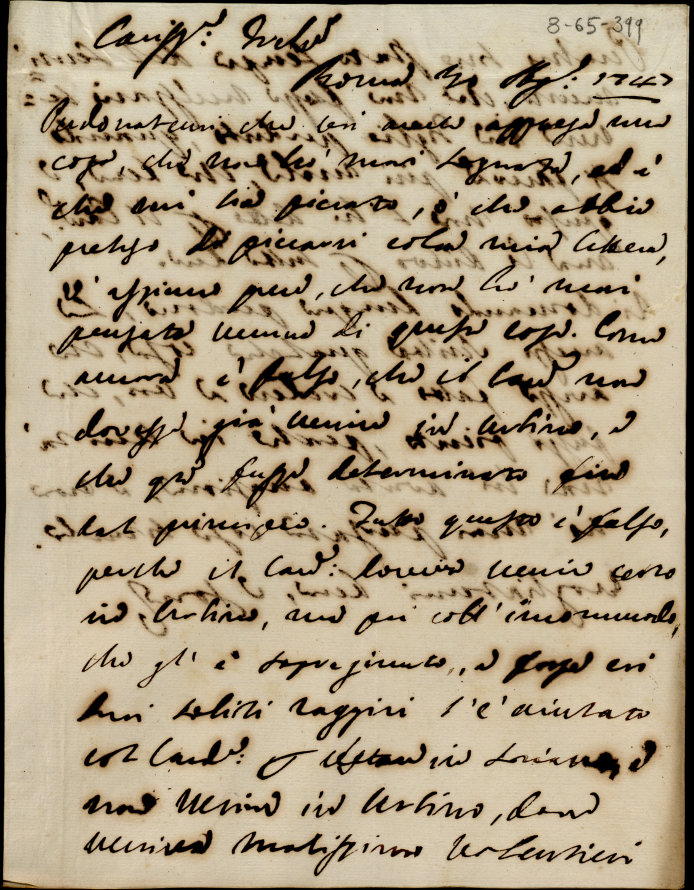 8-65-399
Cariss.º Frelo
Roma 30 Ag.º 1747
Perdonatemi che ieri avete appreso una
cosa, che non hò mai sognata, ed è
che mi sia piccato, e che abbia
preteso di piccarvi colla mia lettera,
V' assicuro però, che non hò mai
pensato veruna di queste cose. Come
ancora è falso, che il Card non
dovesse già venire in Urbino, e
che già fusse determinato fin
dal principio. Tutto questo è falso,
perchè il Card: doveva venir certo
in Urbino, ma poi coll' incommodo,
che gl' è sopragiunto, e forse coi
suoi soliti raggiri s'è aiutato
col Card: restare in Soriano, e
non venire in Urbino, dove
veniva malissimo volentieri